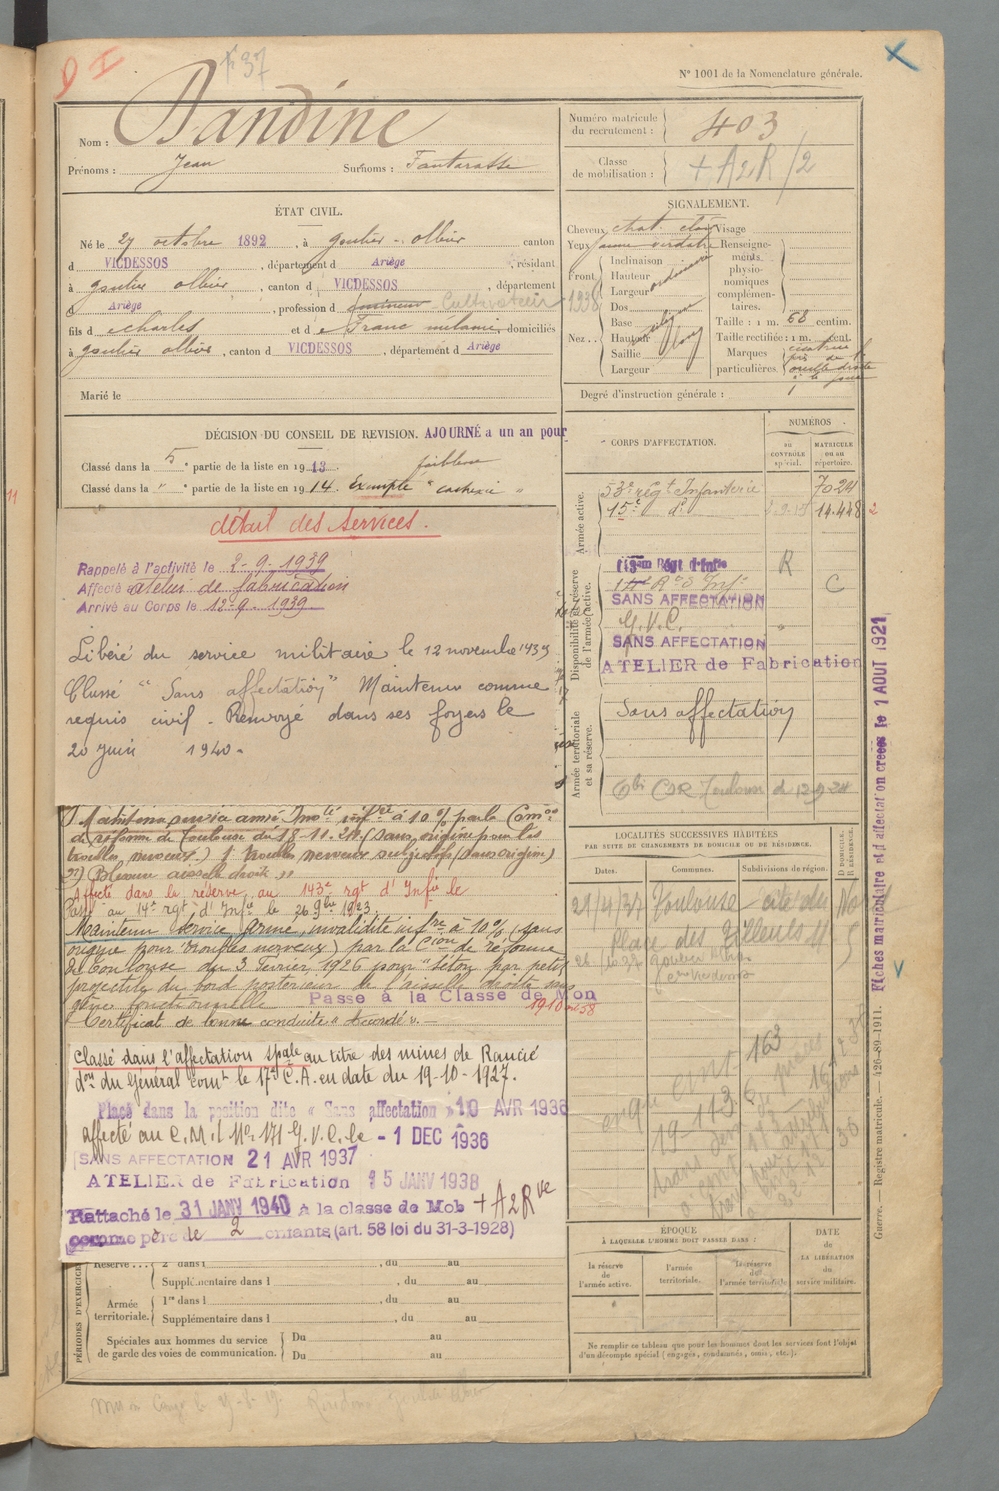 N° 1001 de la Nomenclature générale.
37
Nom : Dandine
Prénoms : Jean Surnoms : Fantarasse
Numéro matricule du recrutement : 403
Classe de mobilisation : + A2R/2
ÉTAT CIVIL.
Né le 27 octobre 1892, à goulier-olbier canton
d VICDESSOS, département d Ariège, résidant
à goulier olbier, canton d VICDESSOS, département
d Ariège, profession d Cultivateur
fils d e Charles et d e Franc mélanie, domiciliés
à goulier olbier, canton d VICDESSOS, département d Ariège
Marié le
SIGNALEMENT.
Cheveux chat. clair Visage
Yeux jaune verdâtre
Front. Inclinaison
Hauteur ordinaire
Largeur
Nez. Dos
Base
Hauteur
Saillie
Largeur
Renseignements physionomiques complémentaires.
Taille : 1 m. 68 centim.
Taille rectifiée : 1 m. cent.
Marques particulières. cicatrice près de l'oreille droite
Degré d'instruction générale :
1938
DÉCISION DU CONSEIL DE REVISION. AJOURNÉ a un an pour
Classé dans la 5e partie de la liste en 1913. faiblesse
Classé dans la " e partie de la liste en 1914. Exempté "cachexie"
détail des Services.
Rappelé à l'activité le 2-9-1939
Affecté atelier de fabrication
Arrivé au Corps le 12-9-1939
Libéré du service militaire le 12 novembre 1939
Classé "Sans affectation" Maintenu comme
requis civil. Renvoyé dans ses foyers le
20 juin 1940.
Maintenu service armé Invté infre à 10% par la Comon
de réforme de Toulouse du 18-11-24 (sans origine pour les
troubles nerveux) 1° troubles nerveux subjectifs (sans origine)
2°) Blessure aisselle droite
Affecté dans la réserve au 143e rgt d'Infie le
Passé au 14e rgt d'Infie le 26 9bre 1923.
Maintenu Service Armé, invalidité infre à 10% (sans
origine pour troubles nerveux) par la Cion de réforme
de Toulouse du 3 Février 1926 pour "séton par petit
projectile du bord postérieur de l'aisselle droite sans
gêne fonctionnelle
Passe à la Classe de Mon
1910
Certificat de bonne conduite "Accordé".
Classé dans l'affectation spale au titre des mines de Rancié
don du Général comt le 17e C.A. en date du 19-10-1927.
Placé dans la position dite « Sans affectation » 10 AVR 1936
affecté au C.M.I No 171 G.V.C. le - 1 DEC 1936
SANS AFFECTATION 21 AVR 1937
ATELIER de Fabrication 15 JANV 1938
Rattaché le 31 JANV 1940 À la classe de Mob + A2Rve
comme père de 2 enfants (art. 58 loi du 31-3-1928)
PÉRIODES D'EXERCICES
Réserve... 2e dans l , du au
Supplémentaire dans l , du au
Armée territoriale. 1re dans l , du au
Supplémentaire dans l , du au
Spéciales aux hommes du service de garde des voies de communication. Du au
Du au
CORPS D'AFFECTATION.
NUMÉROS
AU CONTRÔLE spécial.
MATRICULE OU AU répertoire.
Armée active.
53e régt Infanterie 7024
15e d° 14.448
Disponibilité et réserve de l'armée active.
143em Régt d'Infie R
14e R° d'Infie C
SANS AFFECTATION
G.V.C. "
SANS AFFECTATION
ATELIER de Fabrication
Armée territoriale et sa réserve.
Sans affectation
Toulouse
LOCALITÉS SUCCESSIVES HABITÉES
PAR SUITE DE CHANGEMENTS DE DOMICILE OU DE RÉSIDENCE.
Dates. Communes. Subdivisions de région. D DOMICILE. R RÉSIDENCE.
21/4/37 Toulouse
Place des Tilleuls
163
ÉPOQUE
À LAQUELLE L'HOMME DOIT PASSER DANS :
la réserve de l'armée active.
l'armée territoriale.
la réserve de l'armée territoriale.
DATE de LA LIBÉRATION du service militaire.
Ne remplir ce tableau que pour les hommes dont les services font l'objet
d'un décompte spécial (engagés, condamnés, omis, etc.).
Fiches matriculaire et d'affectation creees le 1 AOUT 1921
Guerre. — Registre matricule. — 426-89-1911.